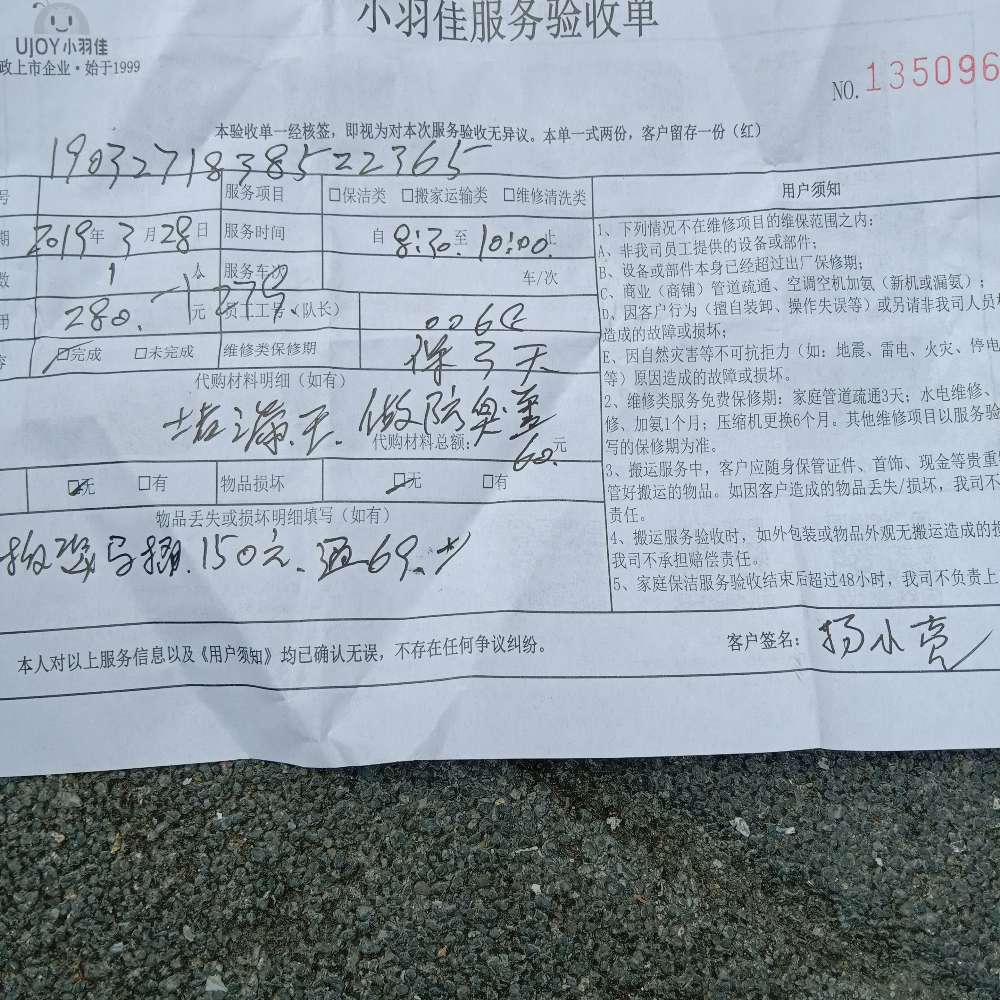 小羽佳服务验收单
UJOY小羽佳
政上市企业·始于1999
NO.135096
本验收单一经核签，即视为对本次服务验收无异议。本单一式两份，客户留存一份（红）
190327183852２365
号 服务项目 □保洁类 □搬家运输类 □维修清洗类
期 2019年3月28日 服务时间 自8:30至10:00止
数 1 人 服务车次 车/次
用 280. 元 员工工号(队长) 0060
□完成 □未完成 维修类保修期 保3天
代购材料明细（如有）
做防臭
代购材料总额： 60. 元
□无 □有 物品损坏 □无 □有
物品丢失或损坏明细填写（如有）
150元
本人对以上服务信息以及《用户须知》均已确认无误，不存在任何争议纠纷。
客户签名：杨水亮
用户须知
1、下列情况不在维修项目的维保范围之内：
A、非我司员工提供的设备或部件；
B、设备或部件本身已经超过出厂保修期；
C、商业（商铺）管道疏通、空调空机加氨（新机或漏氨）；
D、因客户行为（擅自装卸、操作失误等）或另请非我司人员
造成的故障或损坏；
E、因自然灾害等不可抗拒力（如：地震、雷电、火灾、停电
等）原因造成的故障或损坏。
2、维修类服务免费保修期：家庭管道疏通3天；水电维修、
修、加氨1个月；压缩机更换6个月。其他维修项目以服务验
写的保修期为准。
3、搬运服务中，客户应随身保管证件、首饰、现金等贵重
管好搬运的物品。如因客户造成的物品丢失/损坏，我司不
责任。
4、搬运服务验收时，如外包装或物品外观无搬运造成的损
我司不承担赔偿责任。
5、家庭保洁服务验收结束后超过48小时，我司不负责上